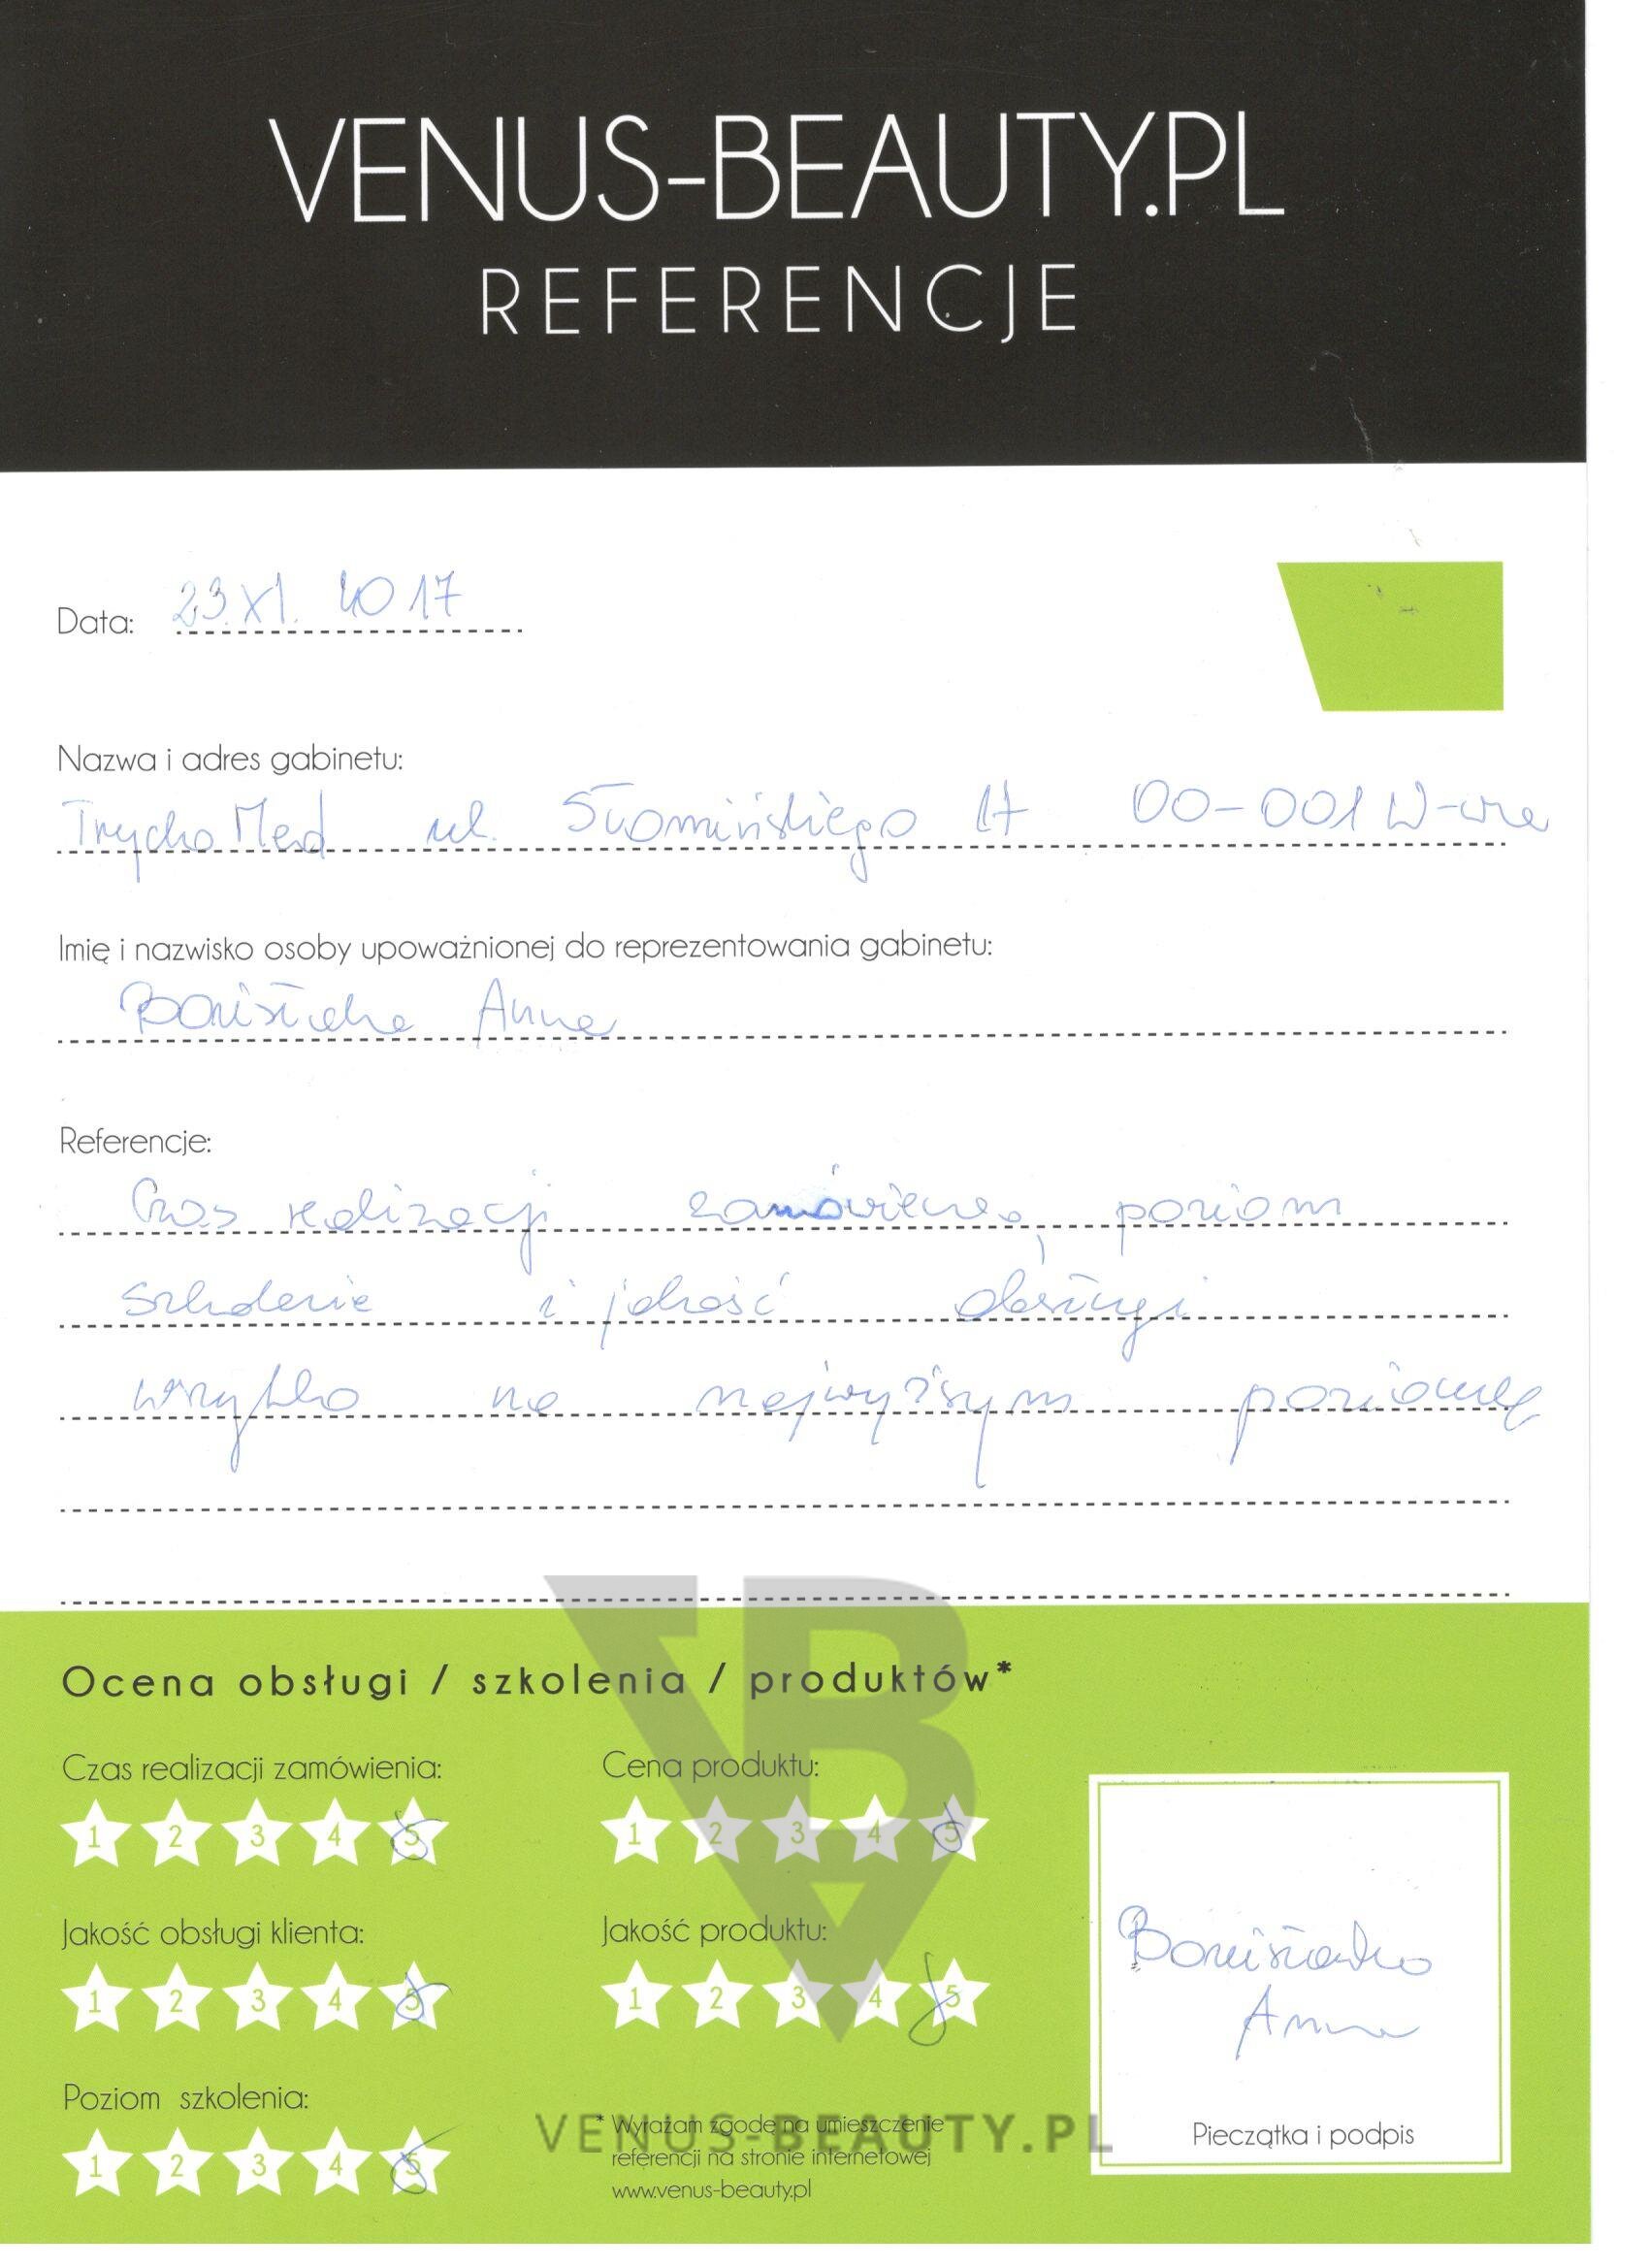 VENUS-BEAUTY.PL
REFERENCJE
Data: 23.XI. 2017
Nazwa i adres gabinetu:
TrychoMed ul. Słomińskiego 17 00-001 W-wa
Imię i nazwisko osoby upoważnionej do reprezentowania gabinetu:
Anna
Referencje:
Czas realizacji zamówienia, poziom
szkolenia i jakość obsługi
wszystko na najwyższym poziomie
Ocena obsługi / szkolenia / produktów*
Czas realizacji zamówienia: Cena produktu:
1 2 3 4 5 1 2 3 4 5
Jakość obsługi klienta: Jakość produktu:
1 2 3 4 5 1 2 3 4 5
Anna
Poziom szkolenia:
1 2 3 4 5
* Wyrażam zgodę na umieszczenie
referencji na stronie internetowej
www.venus-beauty.pl
Pieczątka i podpis
VENUS-BEAUTY.PL